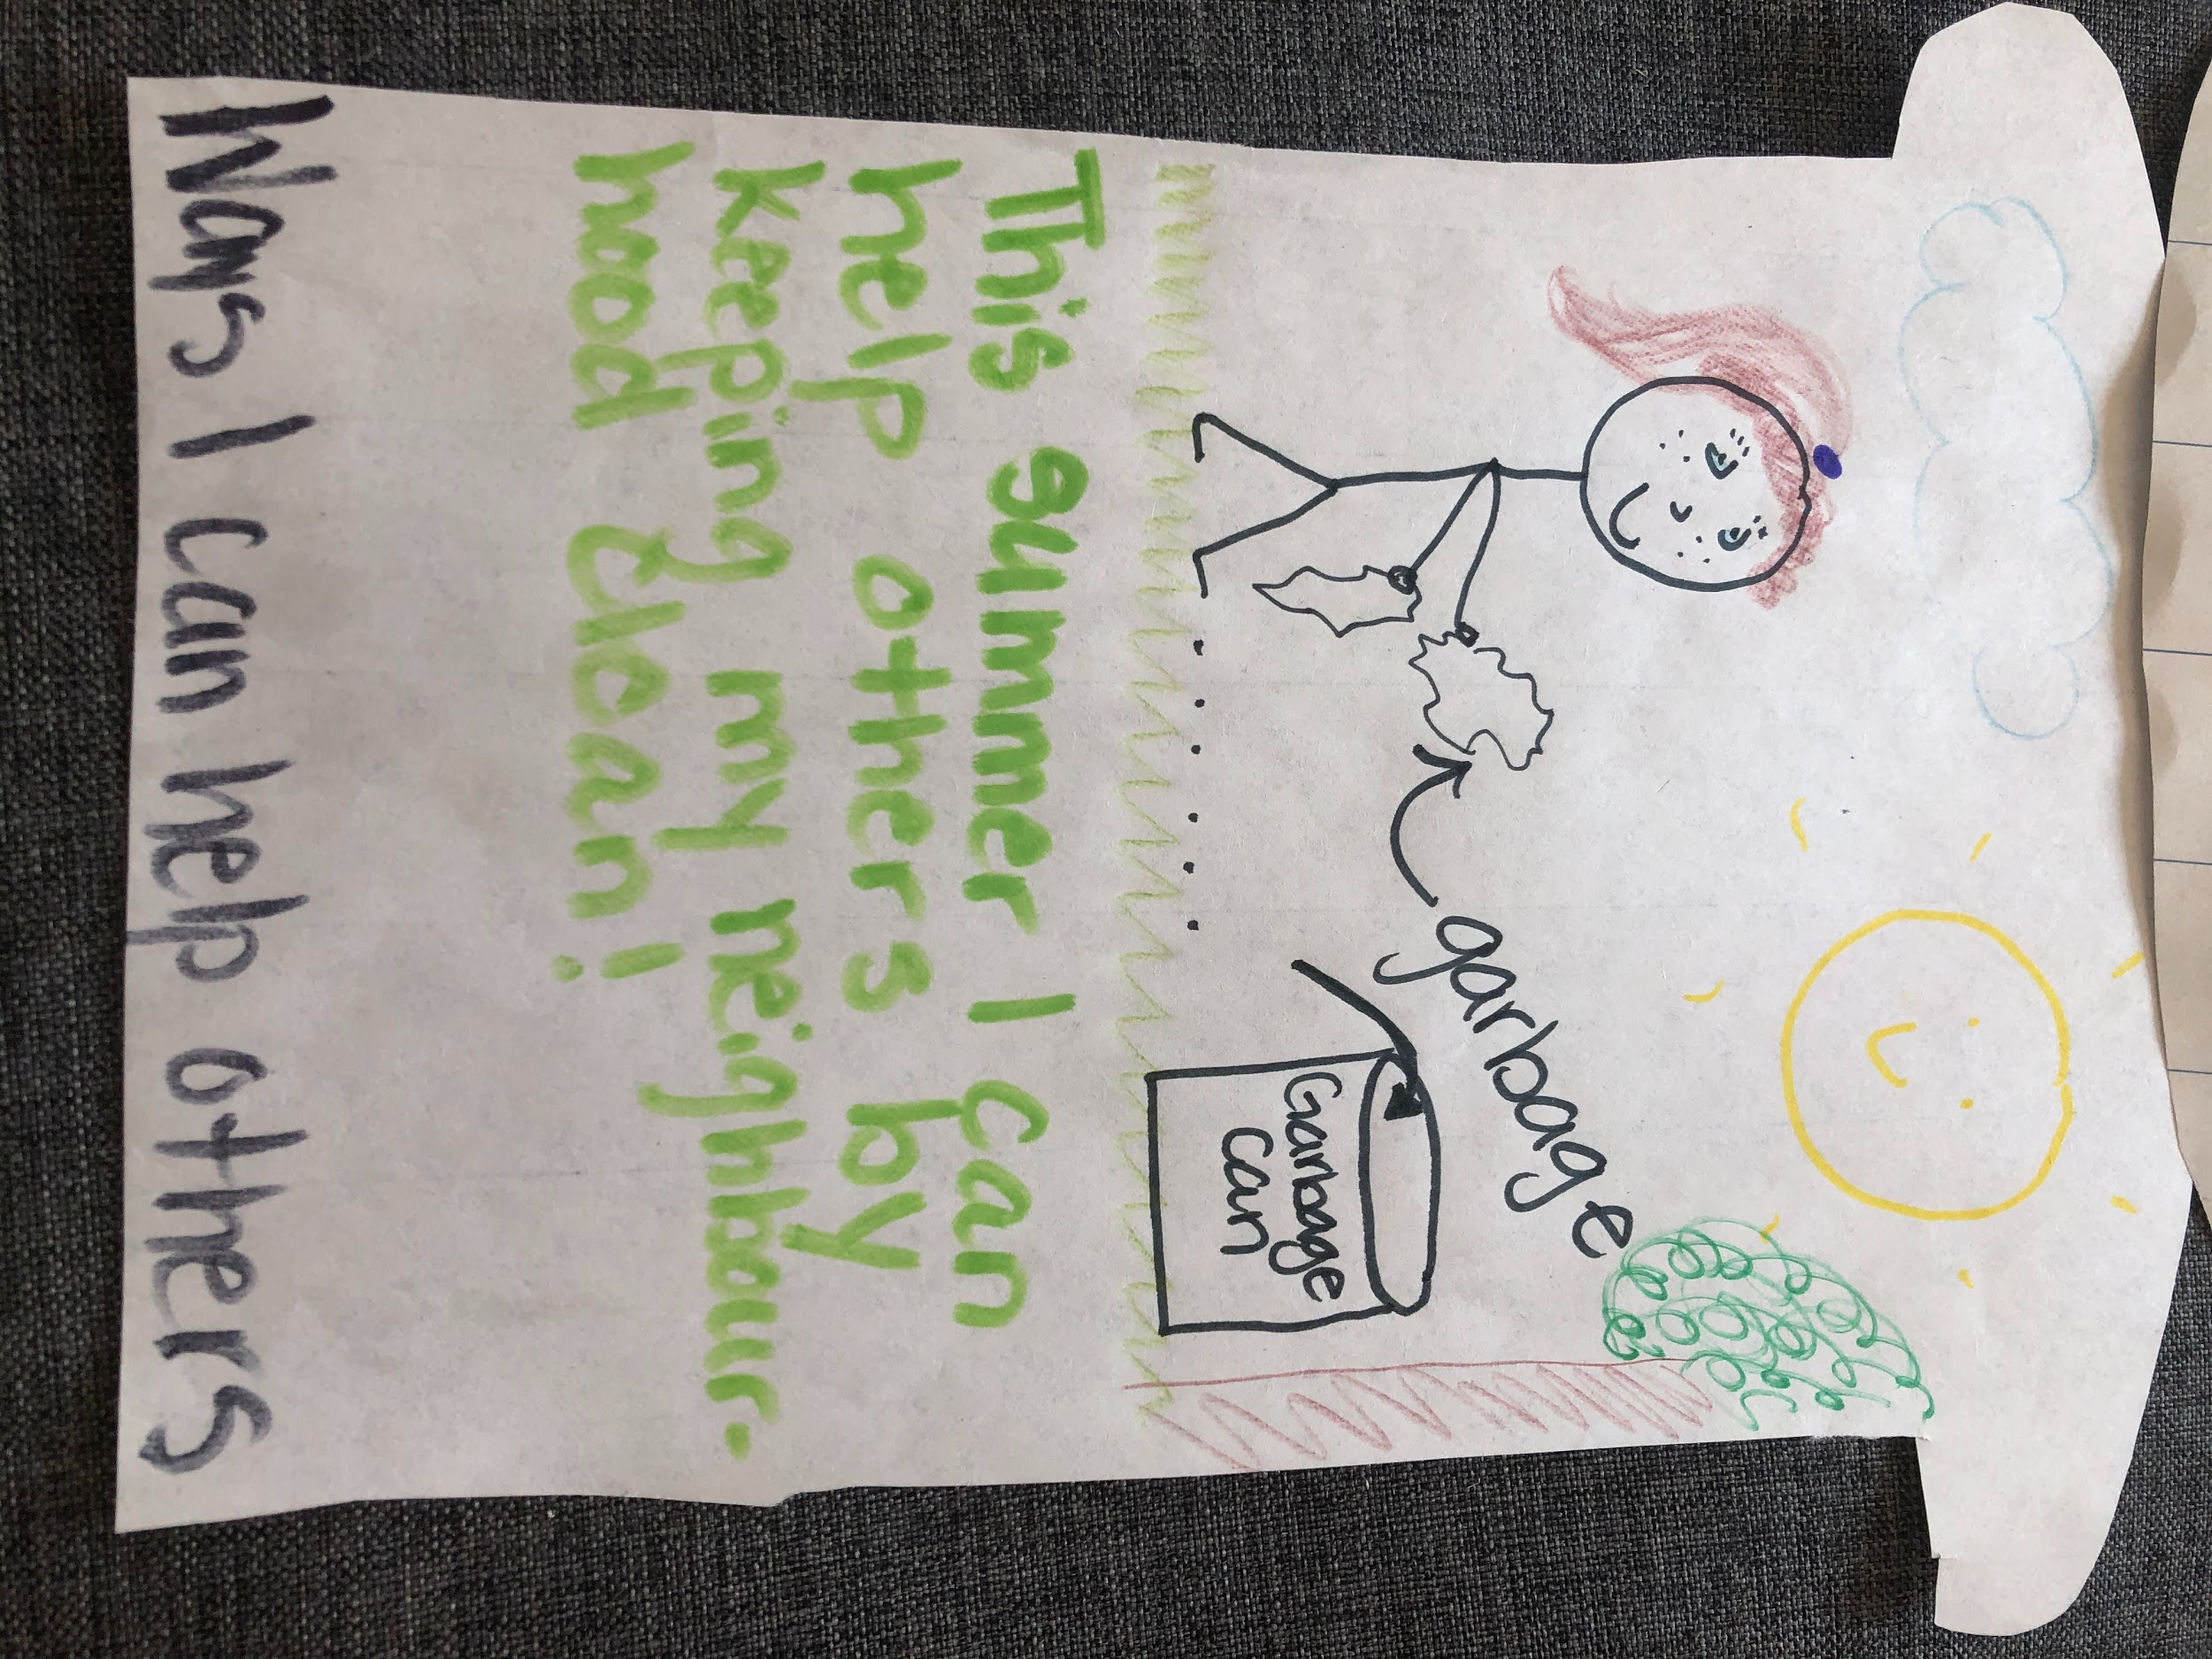 garbage
Garbage
can
This summer I can
help others by
keeping my neighbour-
hood clean!
Ways I can help others